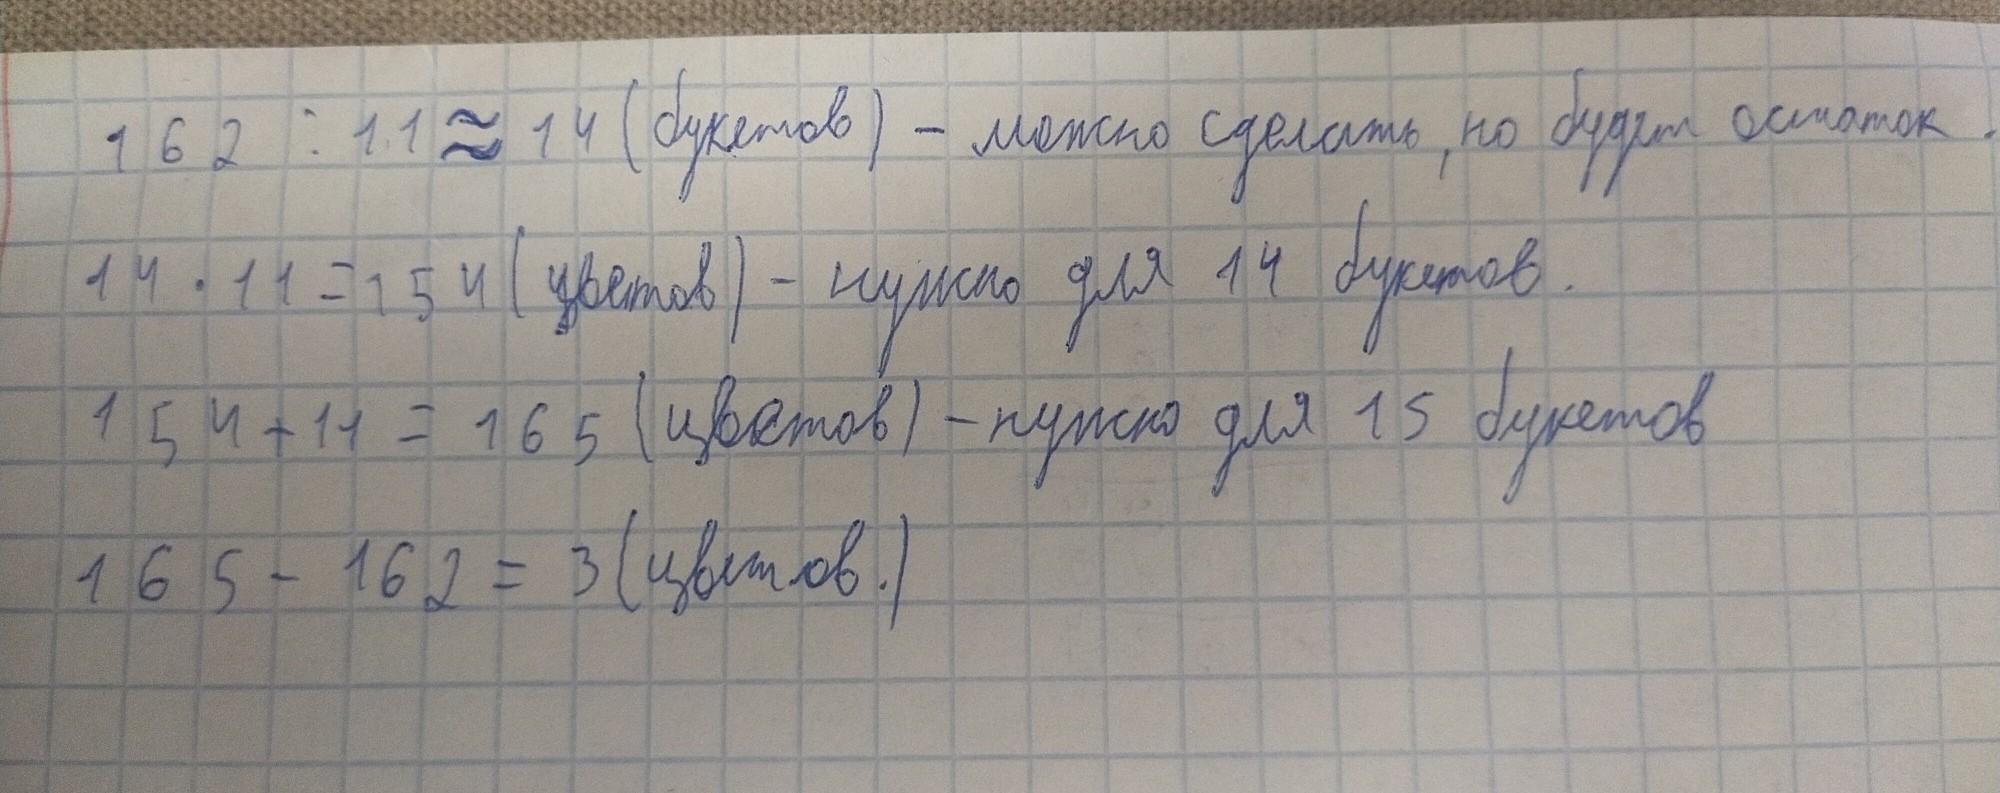 162 : 11 ≈ 14 (букетов) - можно сделать, но будет остаток.
14 · 11 = 154 (цветов) - нужно для 14 букетов.
154 + 11 = 165 (цветов) - нужно для 15 букетов
165 - 162 = 3 (цветов.)